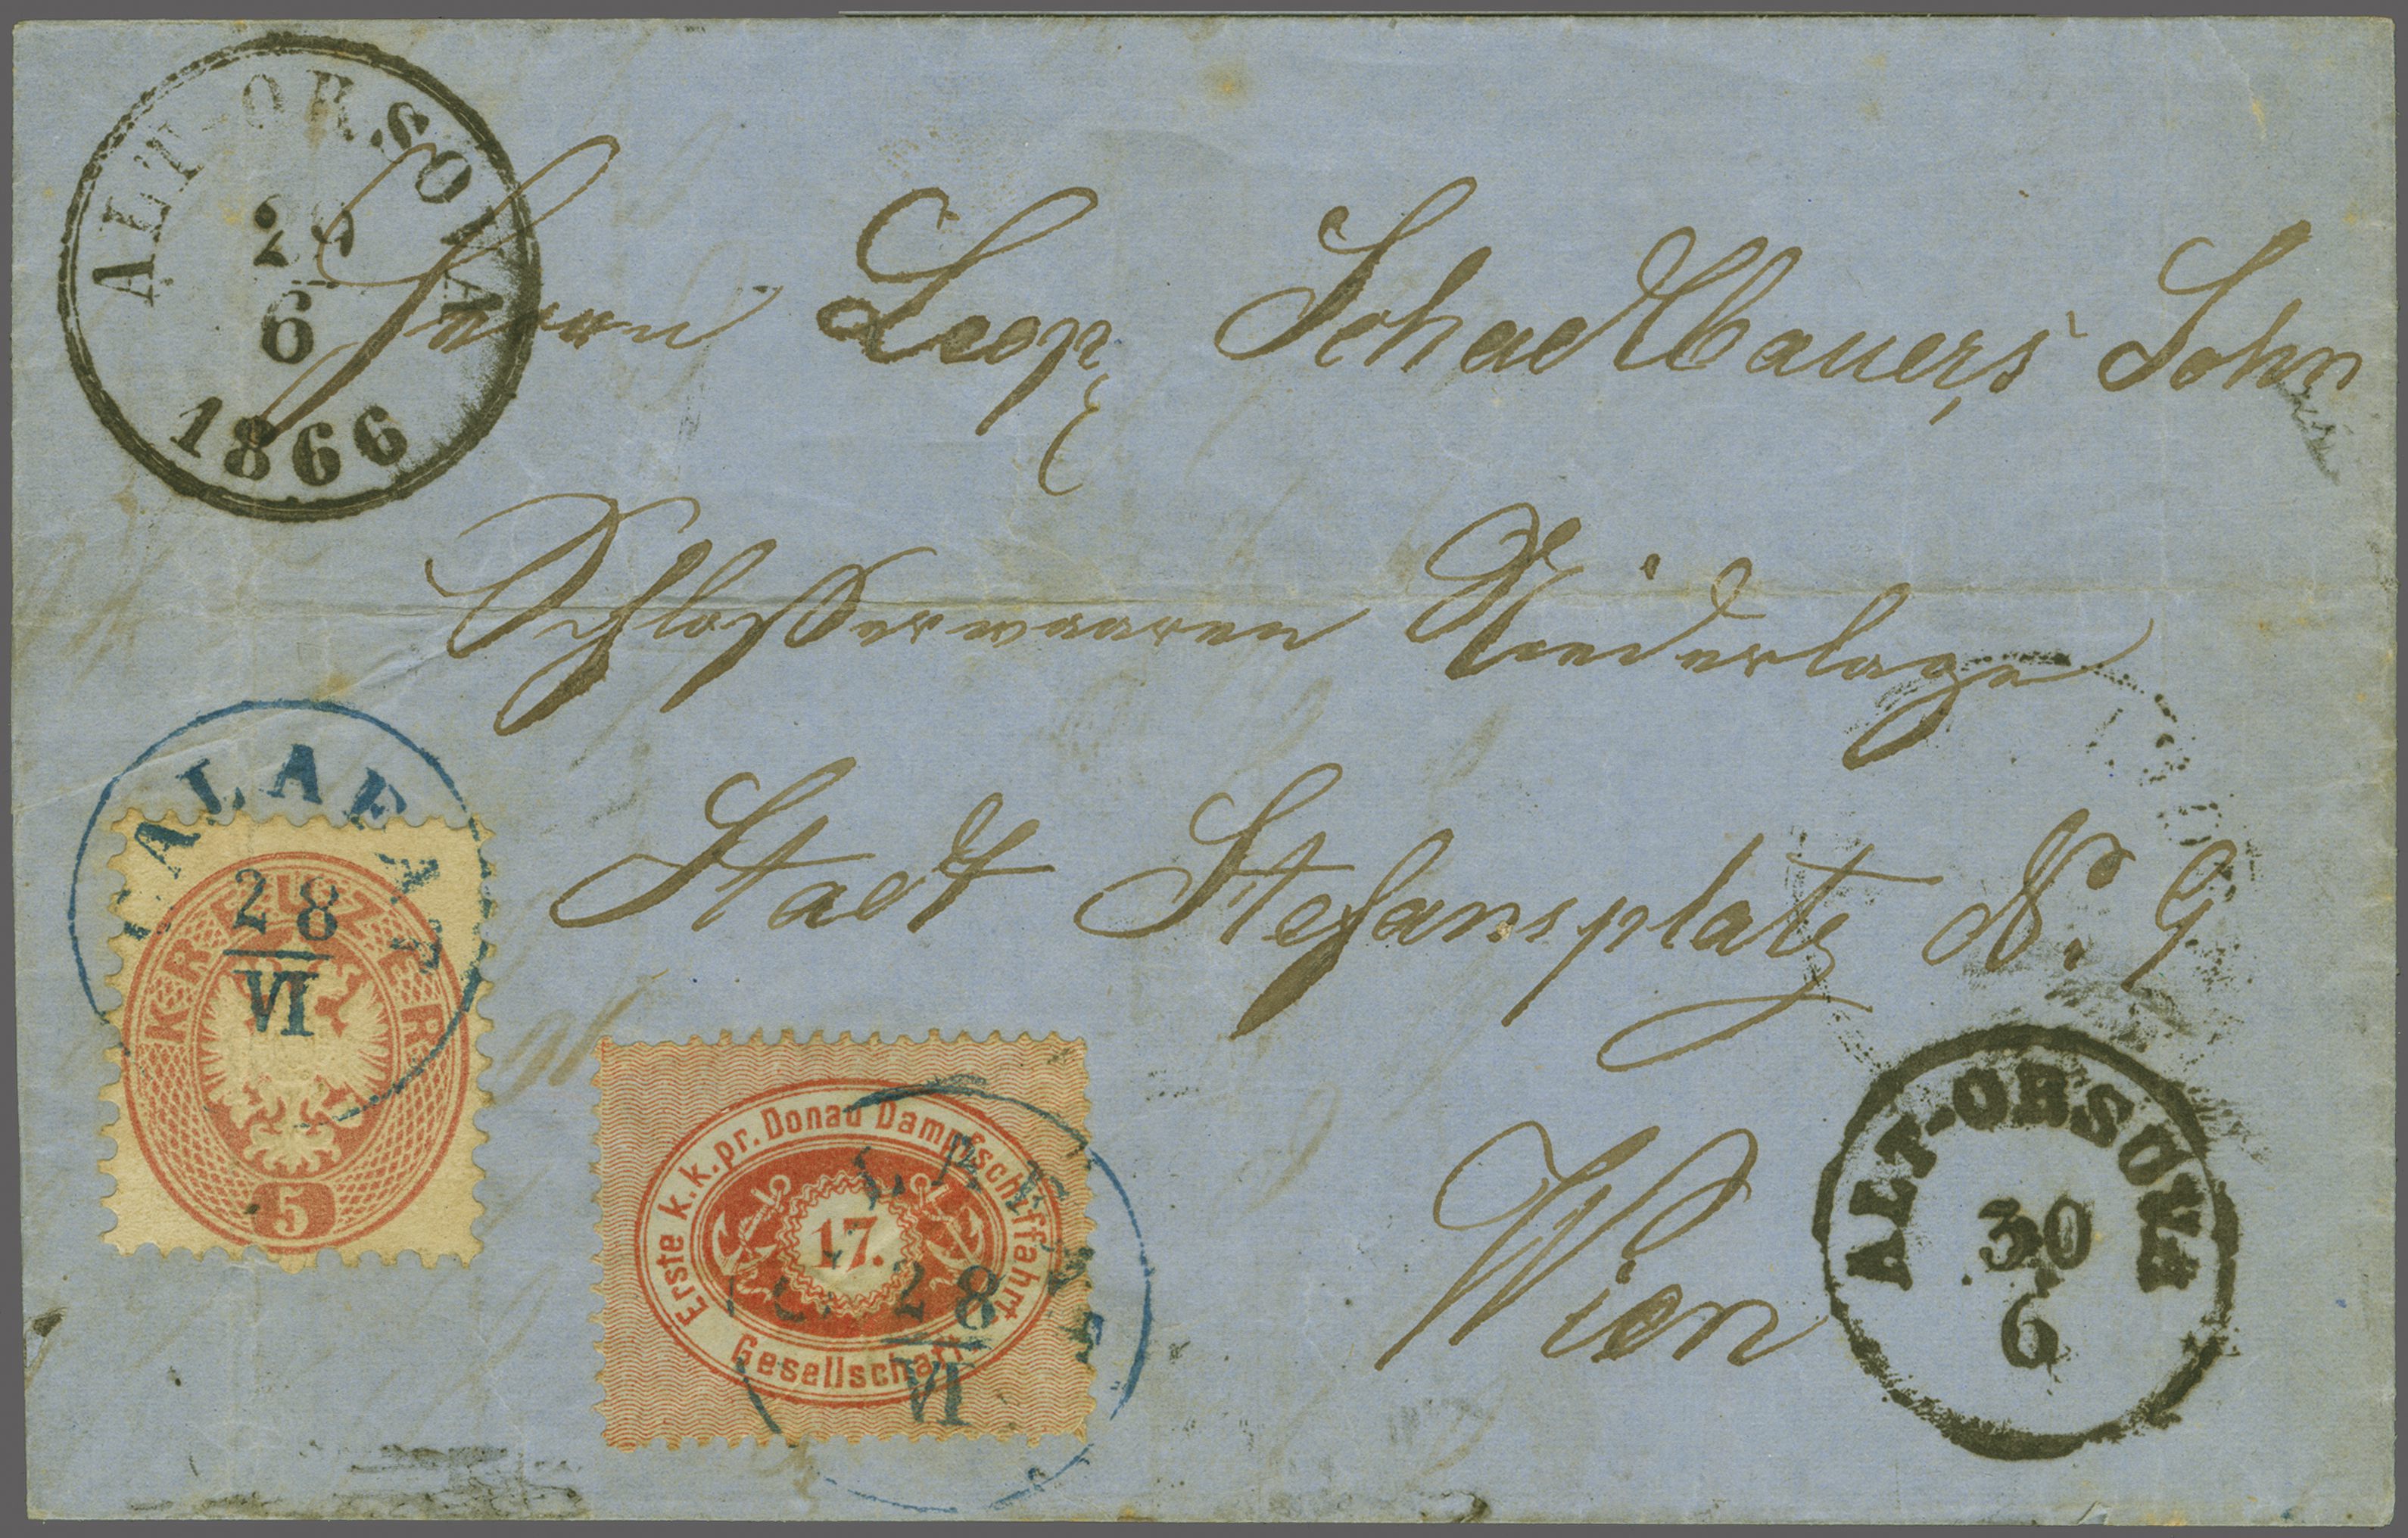 ALT-ORSOVA
29
6
1866
Herrn Leop. Schadlbauers Sohn
Schloßerwaaren Niederlage
Stadt Stefansplatz No. 9
Wien
CALAFAT
28
VI
KREUZER
5
Erste k.k. pr. Donau Dampfschifffahrt
17.
Gesellschaft
28
VI
ALT-ORSOVA
30
6